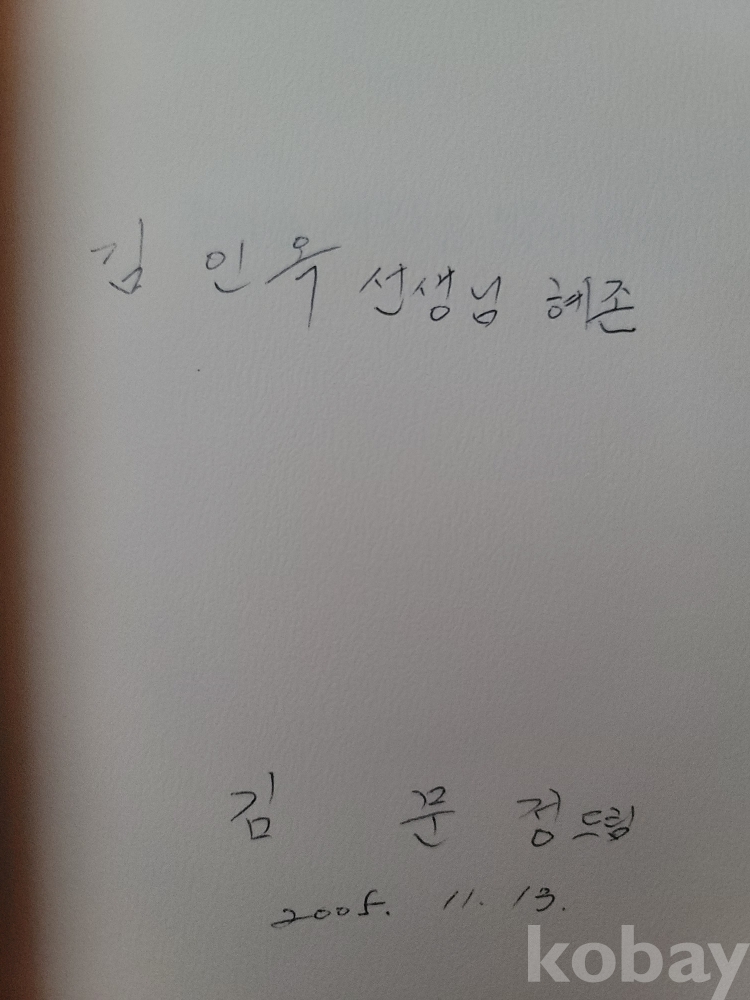 김 인옥 선생님 혜존
김 문정 드림
2005. 11. 13.
kobay